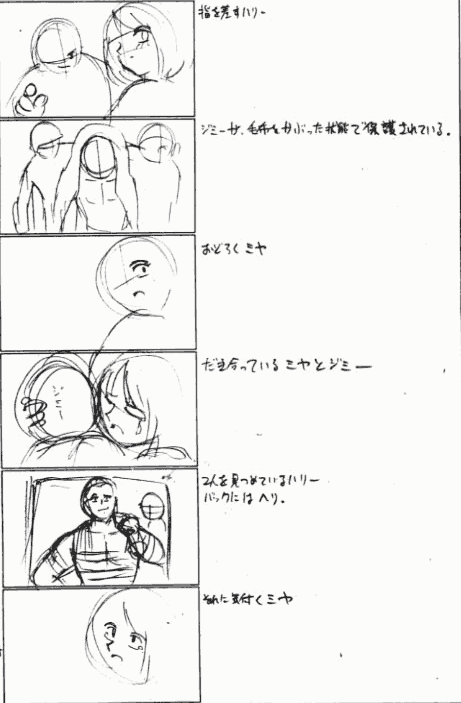 指を差すハリー
ジミーが、毛布をかぶった状態で保護されている。
おどろくミヤ
だき合っているミヤとジミー
ジミー
2人を見つめているハリー
バックにはヘリ。
それに気付くミヤ